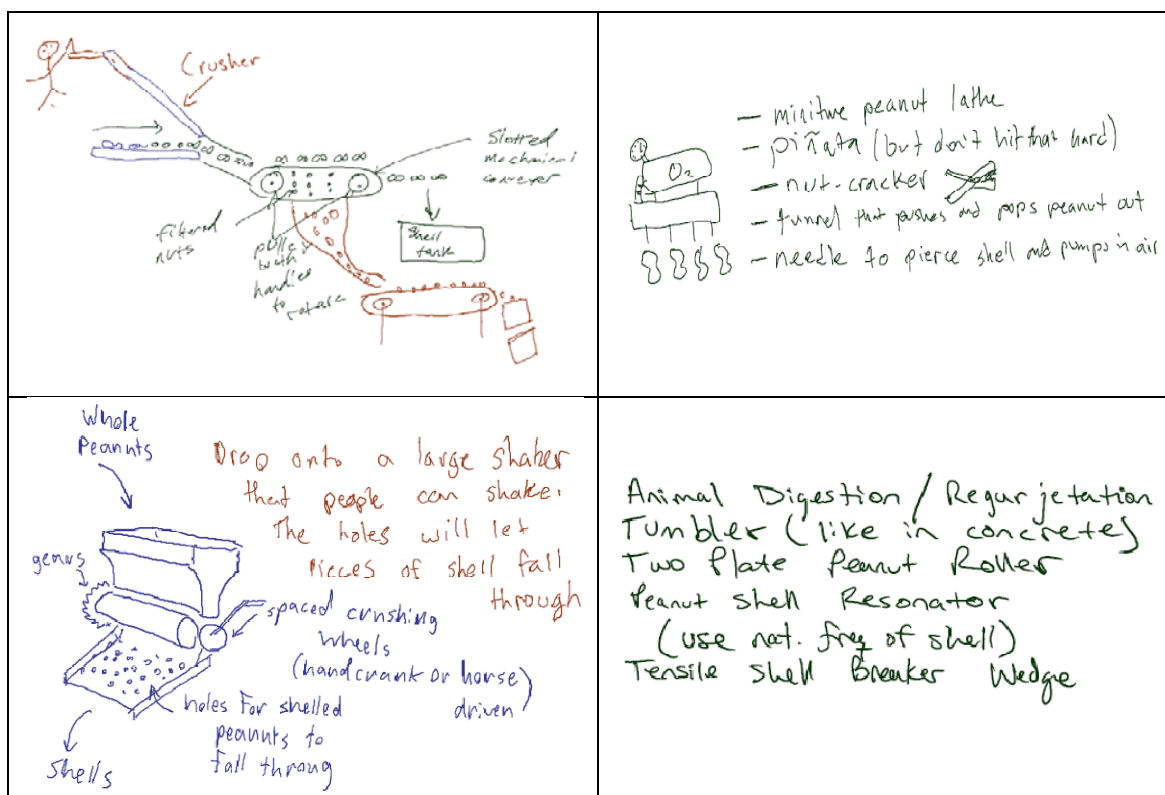 Crusher
Slotted
mechanical
conveyer
filtered
nuts
with
handles
to
rotate
Shell
tank
– miniture peanut lathe
– piñata (but don't hit that hard)
– nut-cracker
– funnel that pushes and pops peanut out
– needle to pierce shell and pumps in air
O2
Whole
Peannts
gears
Drop onto a large shaker
that people can shake.
The holes will let
pieces of shell fall
through
spaced crushing
wheels
(handcrank or horse)
driven
holes for shelled
peannts to
fall throug
shells
Animal Digestion / Regurjetation
Tumbler (like in concrete)
Two Plate Peanut Roller
Peanut Shell Resonator
(use nat. freq of shell)
Tensile Shell Breaker Wedge